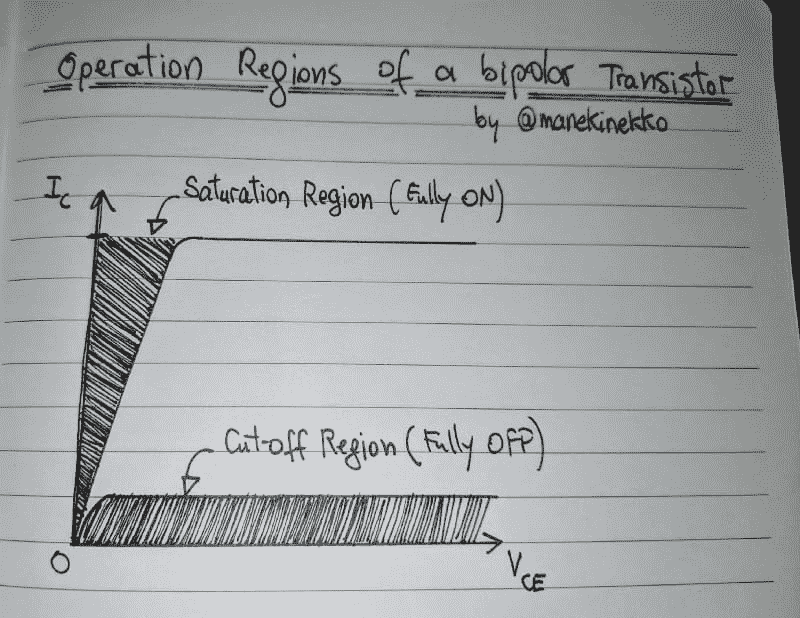 Operation Regions of a bipolar Transistor
by @manekinekko
Ic
Saturation Region (Fully ON)
Cut-off Region (Fully OFF)
O
VCE